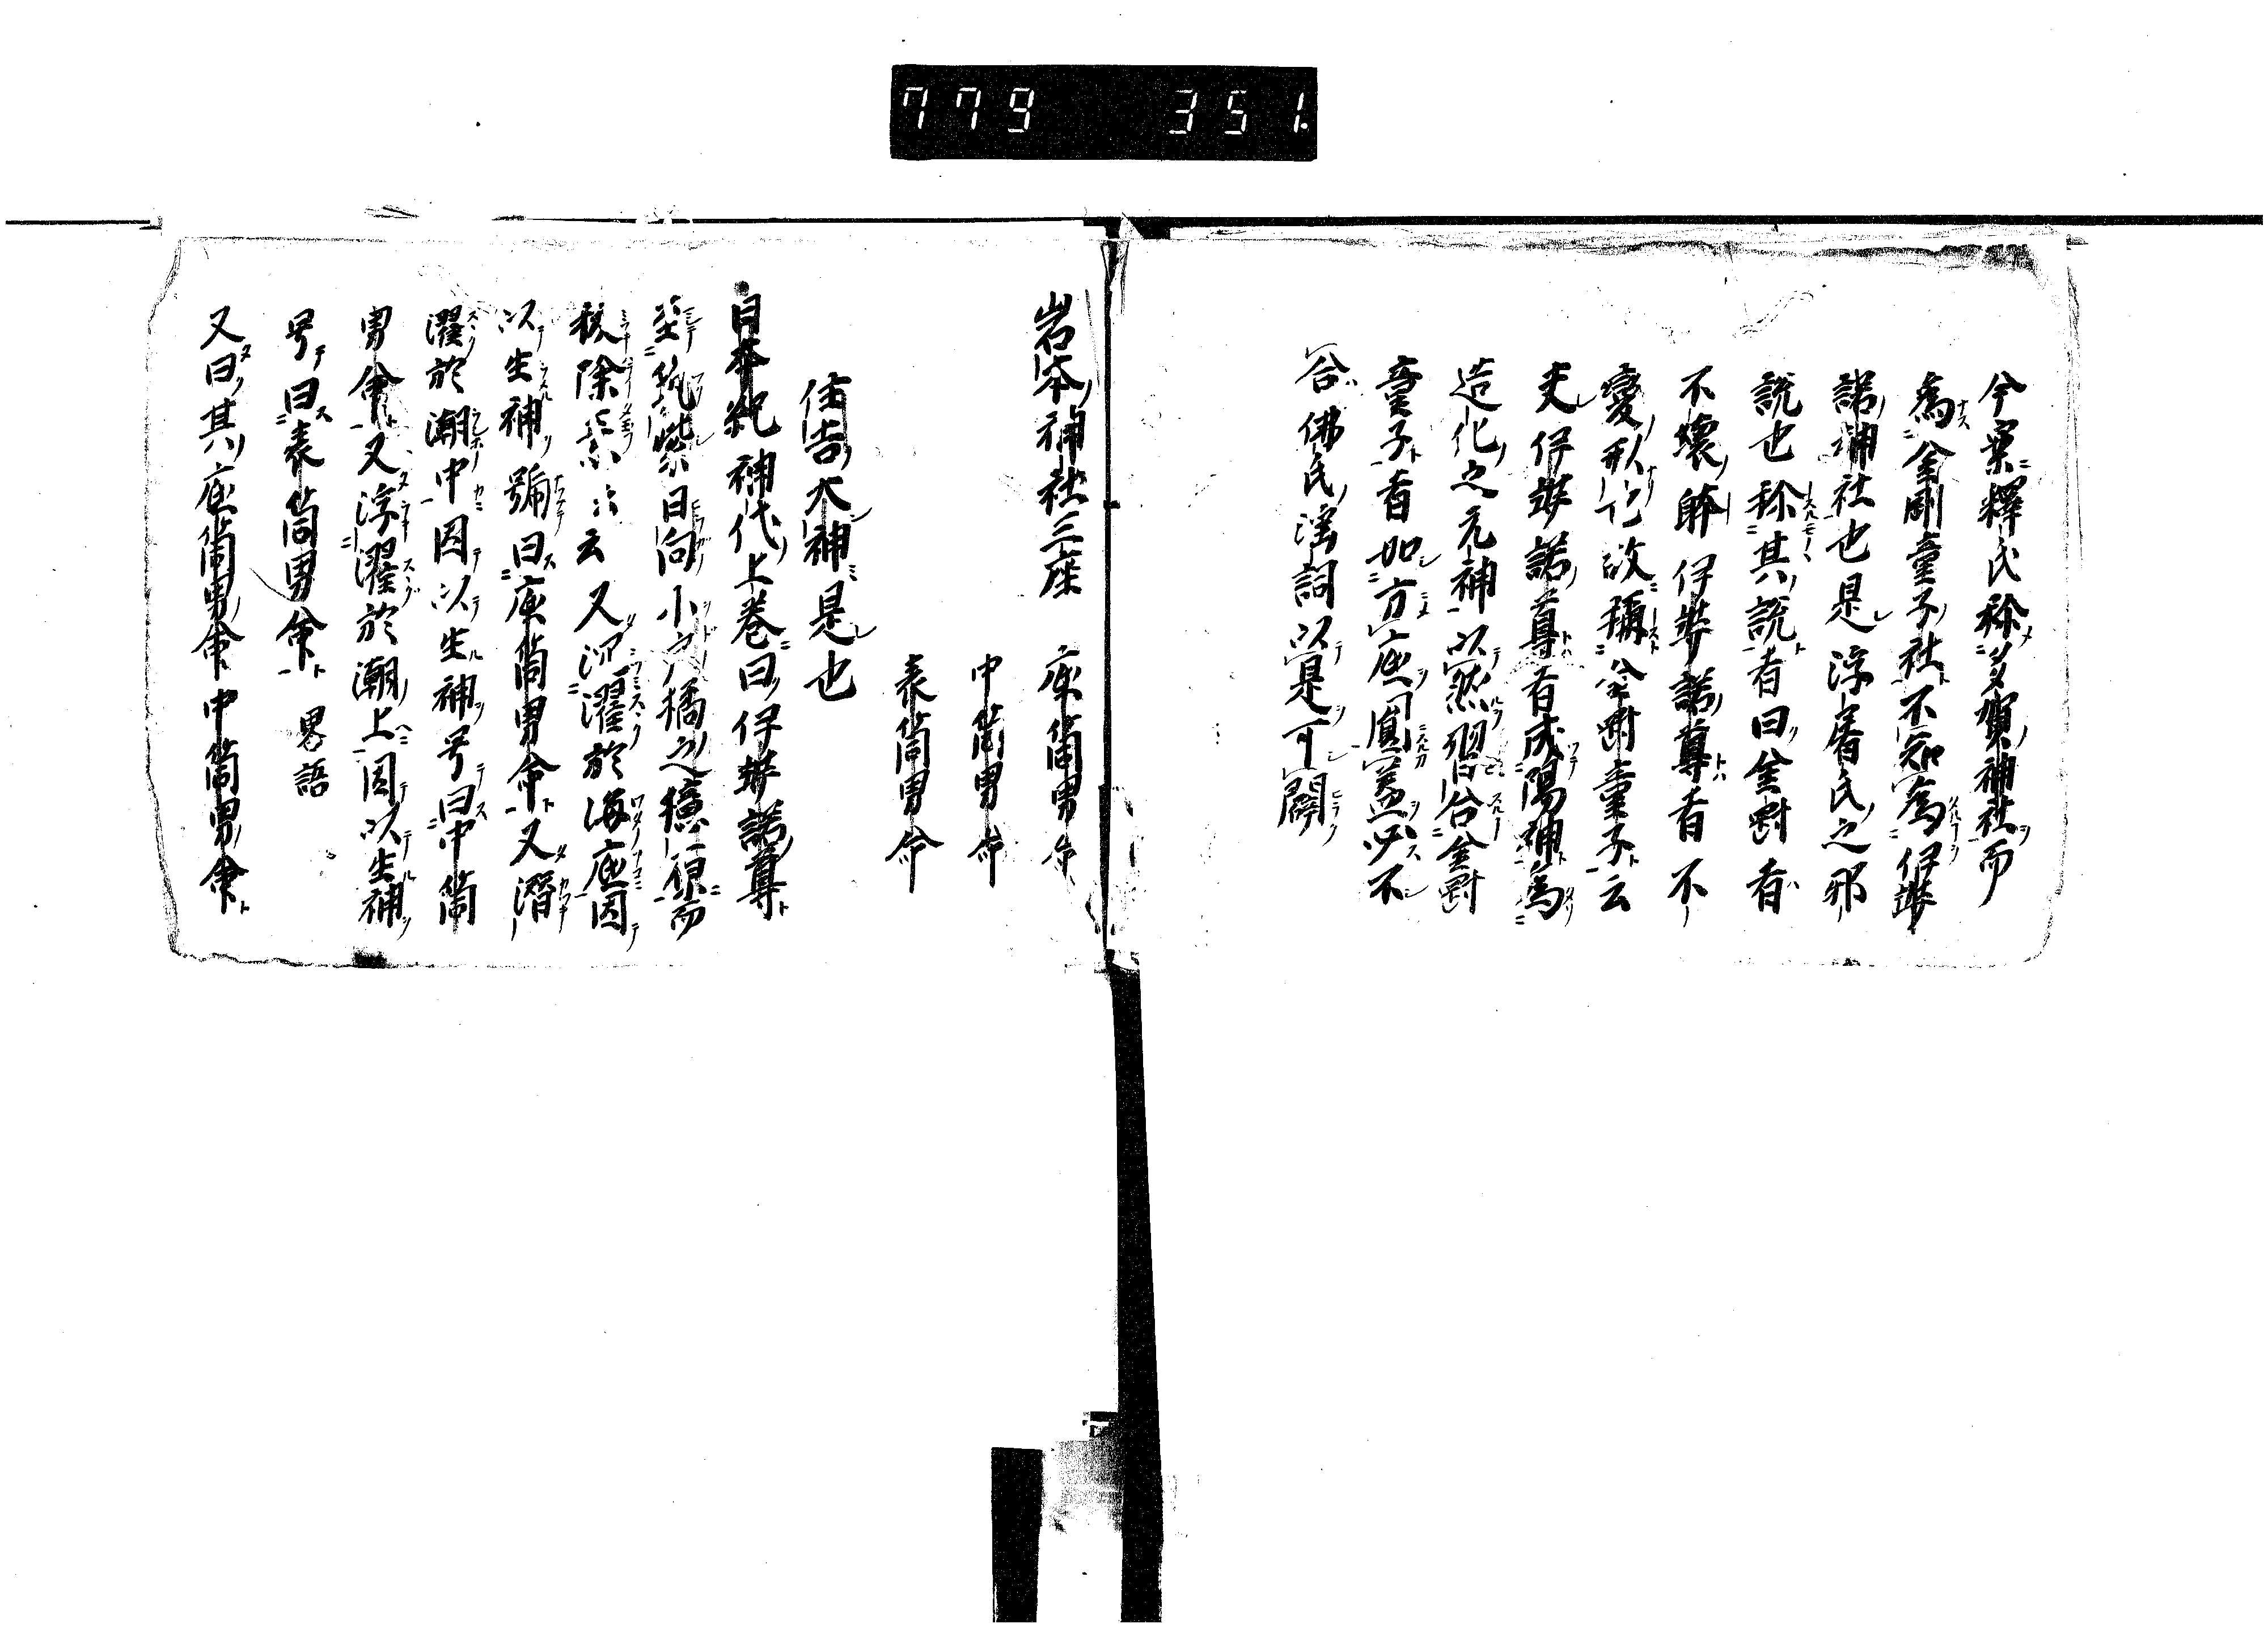 779 351.
今案釋氏称多賀神社而
為金剛童子社不知為伊弉
諾神社也是浮屠氏之邪
說也称其說者曰金剛者
不壊躰伊弉諾尊者不
変形化故稱金剛童子云
夫伊弉諾尊者成陽神為
造化之元神以然習合金剛
童子者如方底圓蓋必不
合佛氏滛詞以是可闢
岩本神社三座 底筒男命
中筒男命
表筒男命
住吉大神是也
日本紀神代上巻曰伊弉諾尊
至筑紫日向小戸橘之檍原而
秡除焉云云又沉濯於海底因
以生神號曰底筒男命又潜
濯於潮中因以生神号曰中筒
男命又浮濯於潮上因以生神
号曰表筒男命 畧語
又曰其底筒男命中筒男命